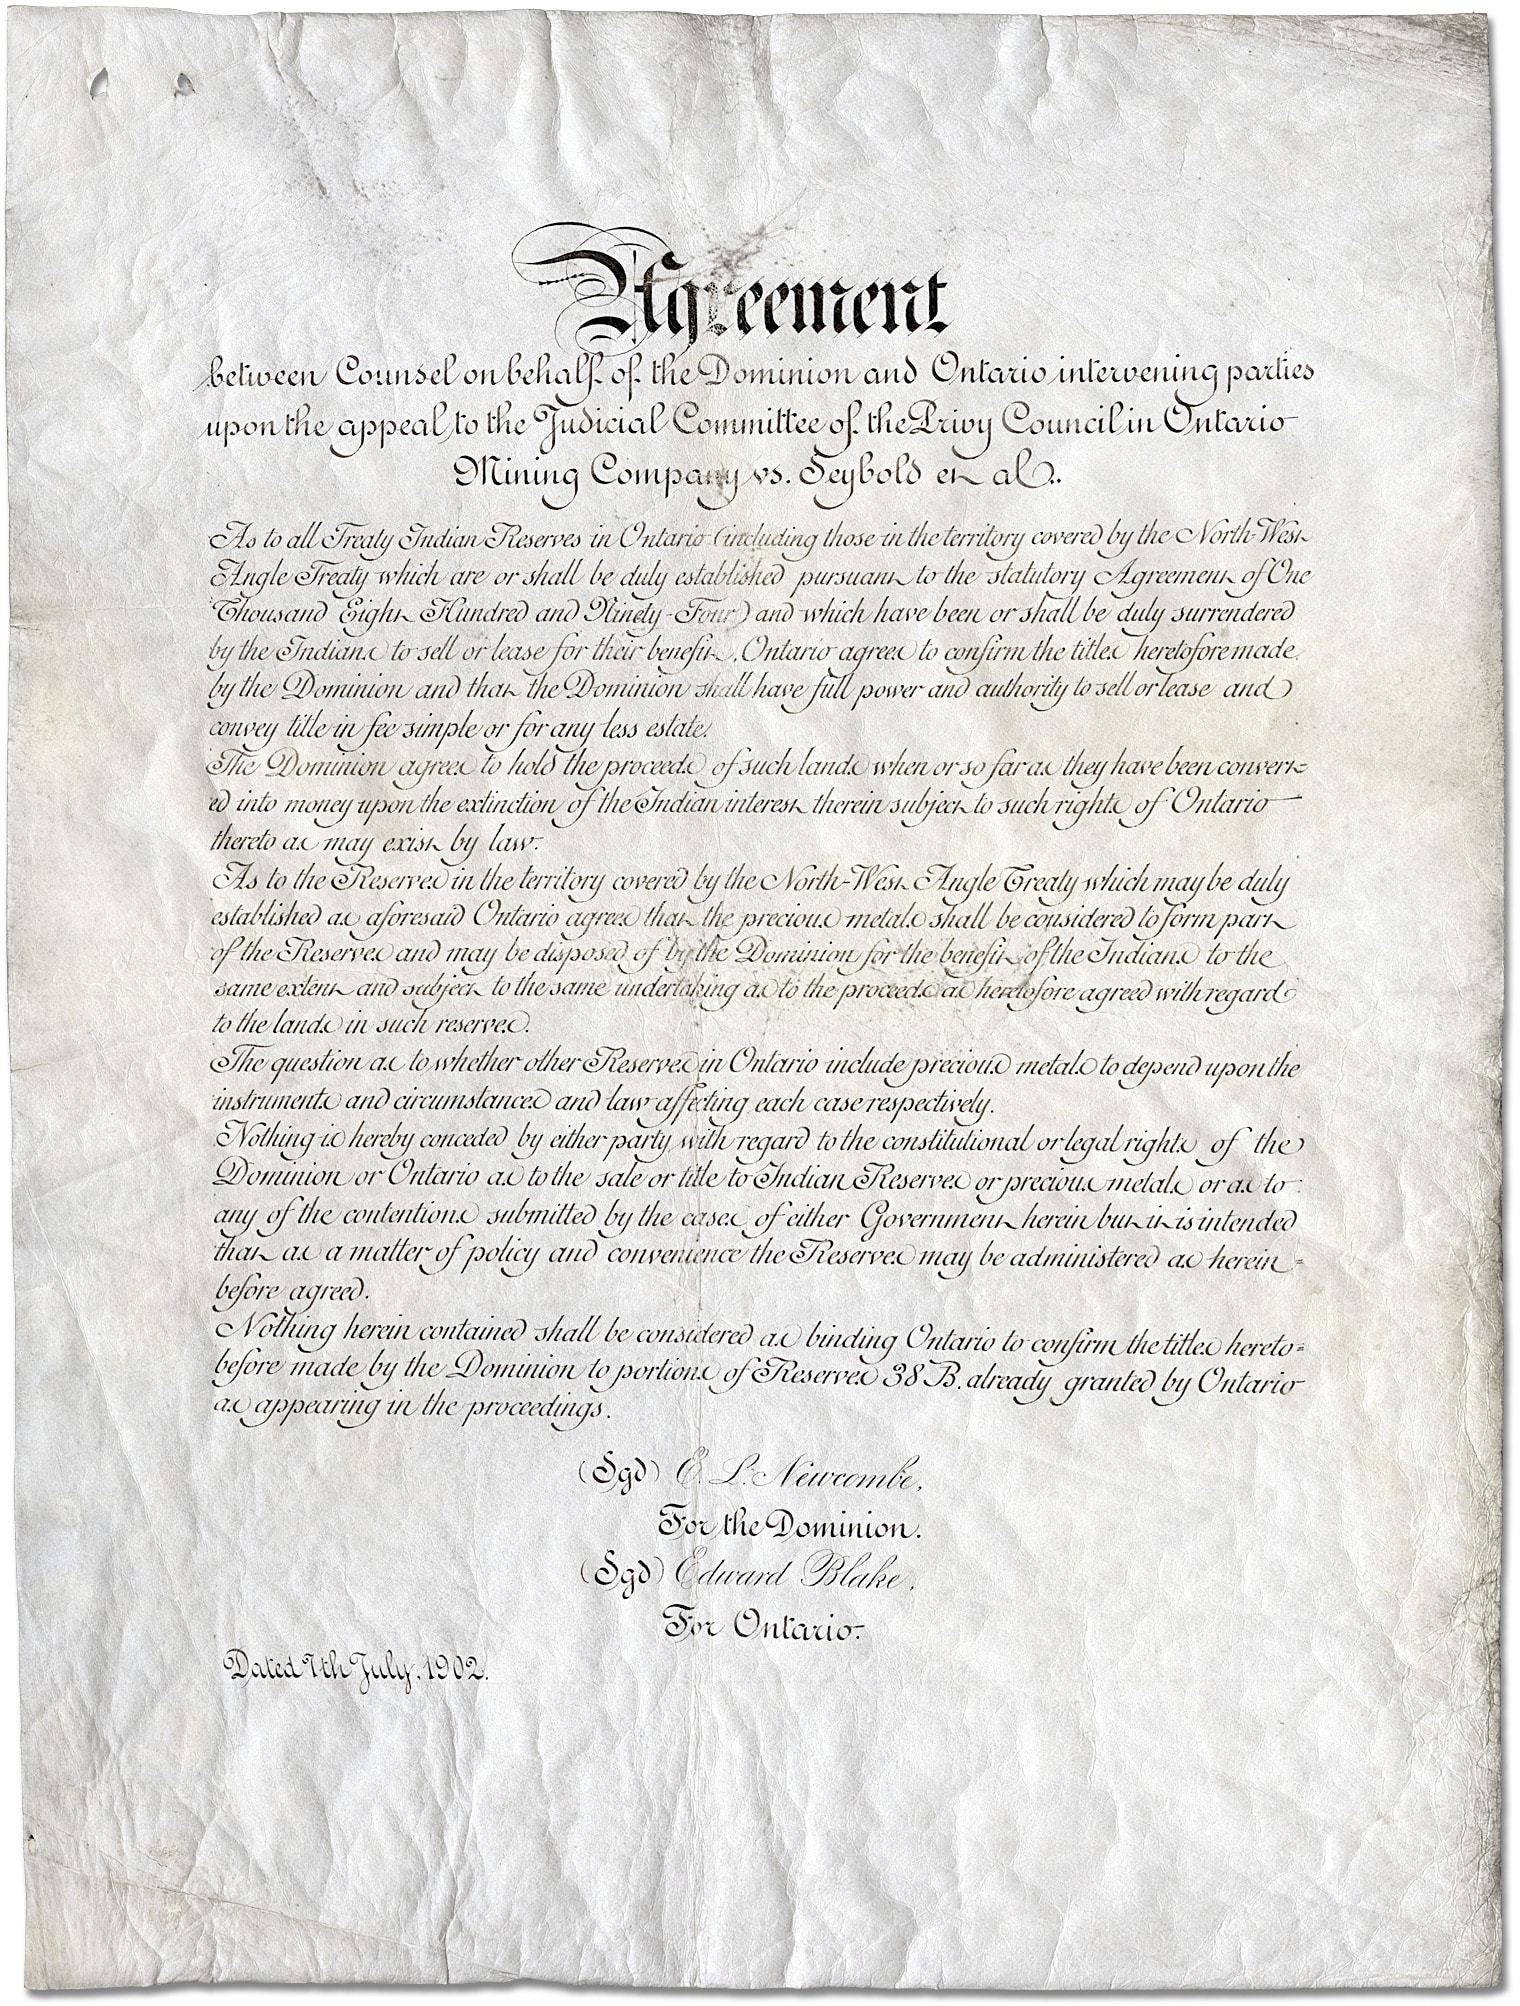 Agreement
between Counsel on behalf of the Dominion and Ontario intervening parties
upon the appeal to the Judicial Committee of the Privy Council in Ontario
Mining Company vs. Seybold et al..
As to all Treaty Indian Reserves in Ontario (including those in the territory covered by the North-West
Angle Treaty which are or shall be duly established pursuant to the statutory Agreement of One
Thousand Eight Hundred and Ninety-Four) and which have been or shall be duly surrendered
by the Indians to sell or lease for their benefit, Ontario agrees to confirm the titles heretofore made
by the Dominion and that the Dominion shall have full power and authority to sell or lease and
convey title in fee simple or for any less estate.
The Dominion agrees to hold the proceeds of such lands when or so far as they have been convert=
ed into money upon the extinction of the Indian interest therein subject to such rights of Ontario
thereto as may exist by law.
As to the Reserves in the territory covered by the North-West Angle Treaty which may be duly
established as aforesaid Ontario agrees that the precious metals shall be considered to form part
of the Reserves and may be disposed of by the Dominion for the benefit of the Indians to the
same extent and subject to the same undertaking as to the proceeds as heretofore agreed with regard
to the lands in such reserves.
The question as to whether other Reserves in Ontario include precious metals to depend upon the
instruments and circumstances and law affecting each case respectively.
Nothing is hereby conceded by either party with regard to the constitutional or legal rights of the
Dominion or Ontario as to the sale or title to Indian Reserves or precious metals or as to
any of the contentions submitted by the cases of either Government herein but it is intended
that as a matter of policy and convenience the Reserves may be administered as herein=
before agreed.
Nothing herein contained shall be considered as binding Ontario to confirm the titles hereto=
before made by the Dominion to portions of Reserves 38 B. already granted by Ontario
as appearing in the proceedings.
(Sgd) E. L. Newcombe,
For the Dominion.
(Sgd) Edward Blake,
For Ontario.
Dated 7th July, 1902.